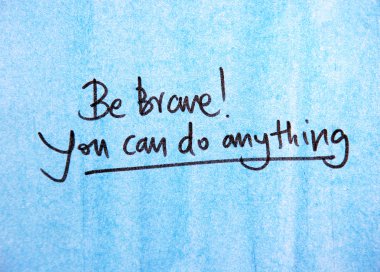 Be Brave!
You can do anything